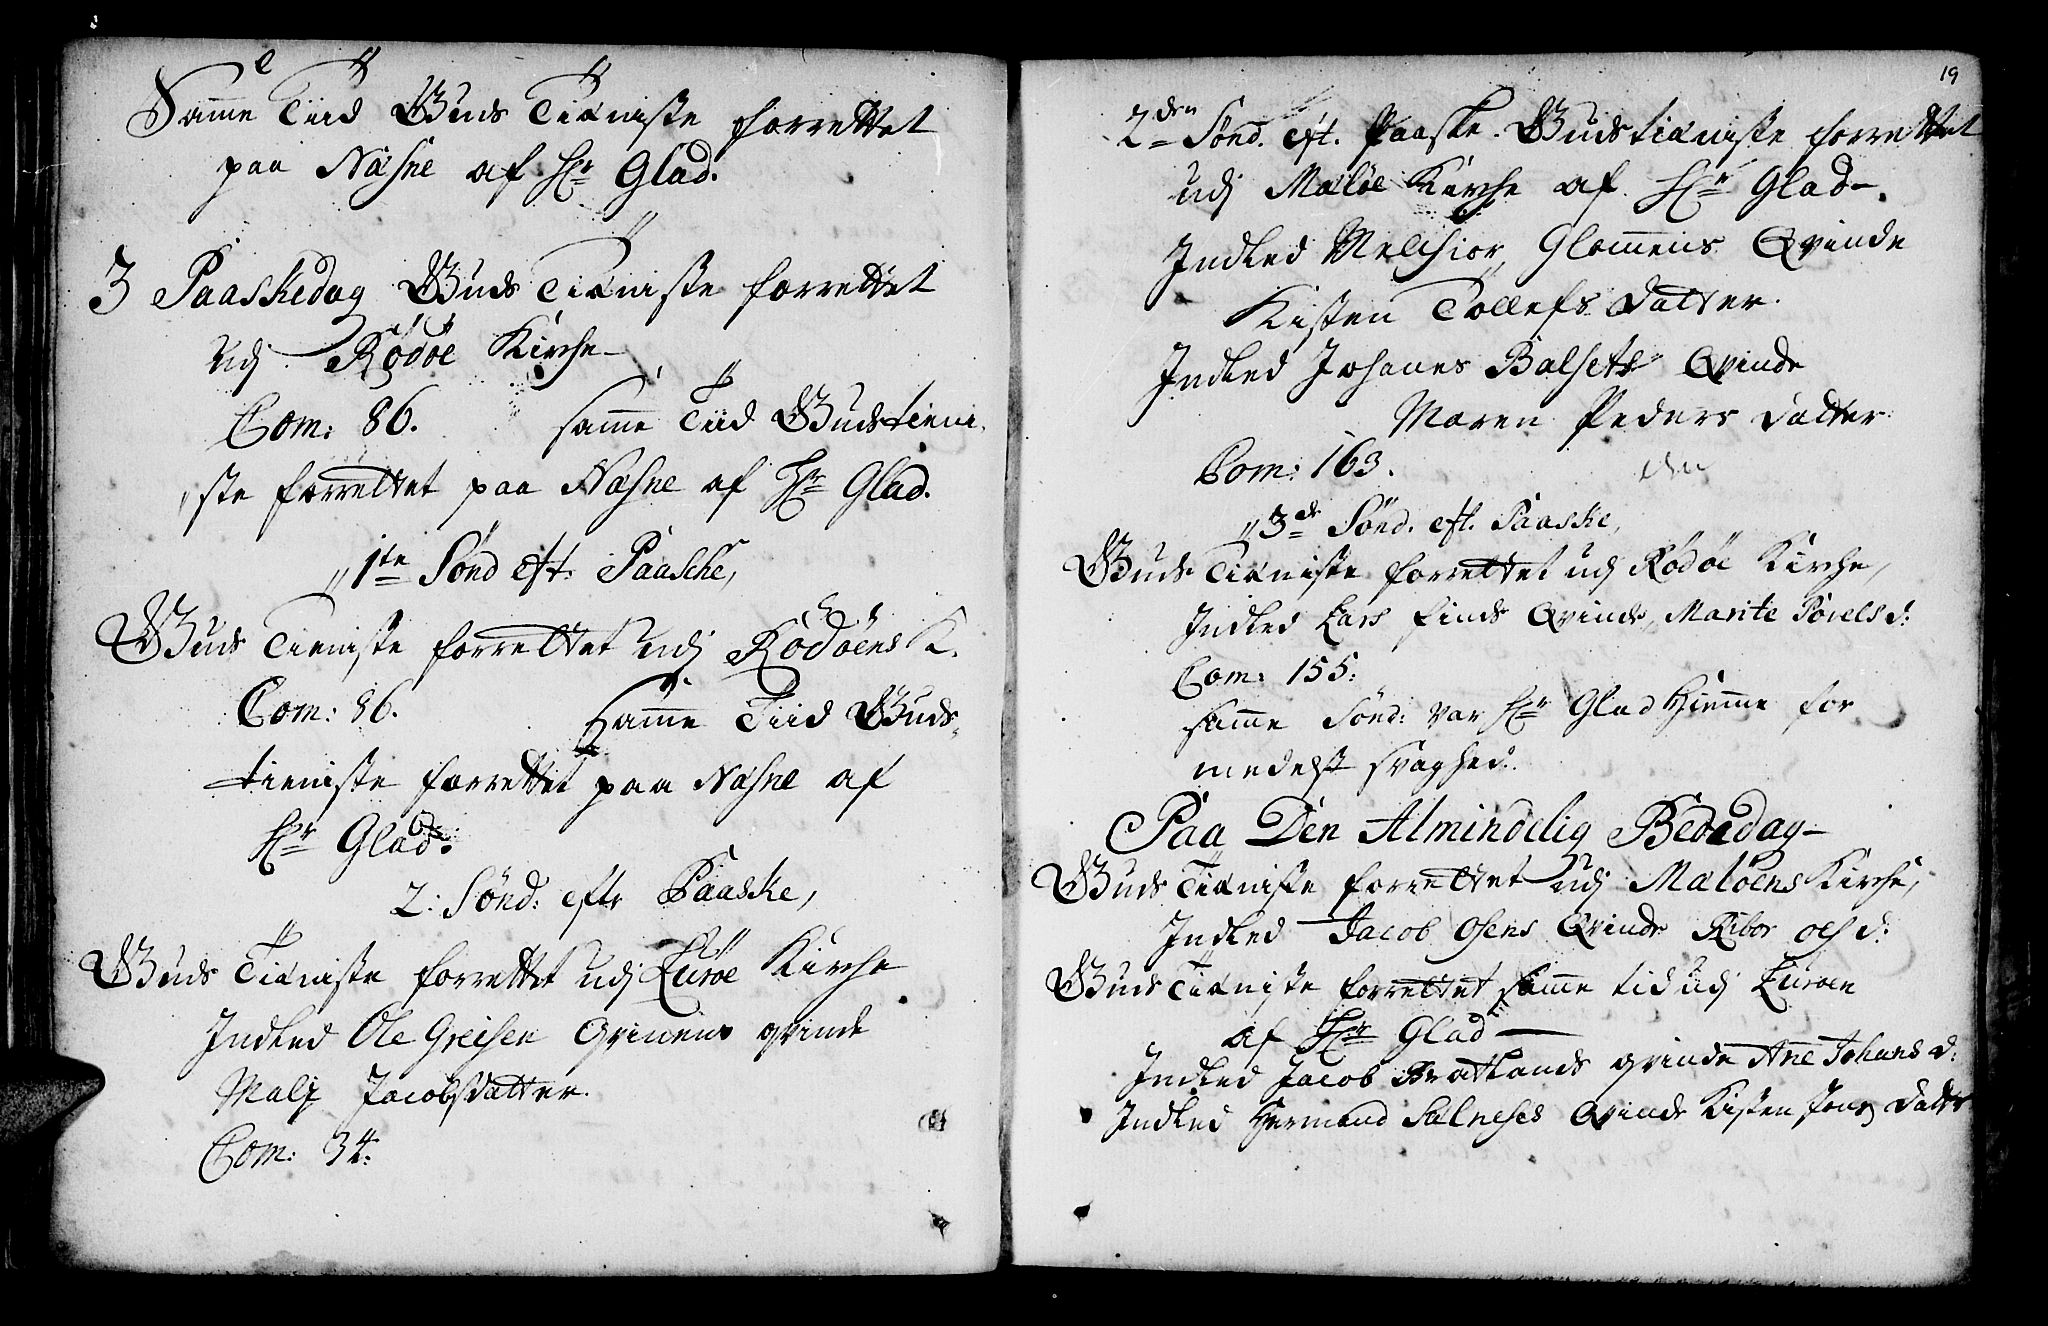 Samme Tiid Guds Tieniste forrettet
paa Næsne af Hr Glad.
3 Paaskedag Guds Tieniste forrettet
udj Rødøe Kirche
Com: 86. samme Tiid Gudstieni-
ste forrettet paa Næsne af Hr Glad.
1te Sönd eft: Paasche,
Guds Tieniste forrettet udj Rödöens K.
Com: 86. Samme Tiid Guds-
tieniste forrettet paa Næsne af
Hr Glad:
2: Sönd: eftr Paaske,
Guds Tieniste forrettet udj Luröe Kirche
Indled Ole Greisen qvinde
Mali Jacobsdatter.
Com: 34:
19
2den Sönd. eft. Paaske. Gudstieniste forrettet
udj Meløe Kirche af Hr Glad.
Indled Melchior Glommens Qvinde
Kisten Tollefs Datter.
Indled Johanes Balsets Qvinde
Maren Peders Datter
Com: 163.
3de Sönd. eft. Paaske,
Guds Tieniste forrettet udj Rödöe Kirche,
Indled Lars Finds Qvinde, Marite d:
Com: 155:
samme Sönd: var Hr Glad Hiemme for
medelst svaghed.
Paa Den Almindelig Bededag
Guds Tieniste forrettet udj Melöens Kirche,
Indled Jacob Osens Qvinde d:
Guds Tieniste forrettet samme tid udj Luröen
af Hr Glad
Indled Jacob Bratlands qvinde Ane Johans d:
Indled Hermand Qvinde Kisten Datter